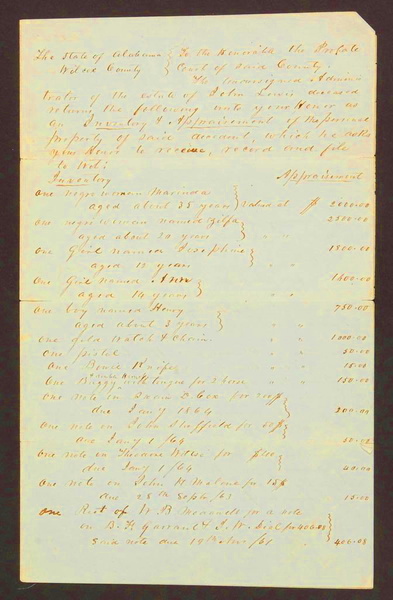 The State of Alabama } To the Honorable the Probate
Wilcox County } Court of said County.
The undersigned Adminis
trator of the estate of John Lewis deceased
returns the following unto your Honor as
an Inventory & Appraisement of the personal
property of said deceased, which he asks
your Honor to receive, record and file
to wit:
Inventory Appraisement
One negro woman Marinda }
aged about 35 years } valued at $ 2000.00
One negro woman named
aged about 20 years } " " 2500.00
One Girl named Josephine }
aged 15 years " " 1800.00
One Girl named Ann }
aged 14 years " " 1800.00
One boy named Henry }
aged about 3 years " " 750.00
One gold Watch & Chain " " 1000.00
One pistol " " 50.00
One Knife " " 15.00
One Buggy with tongue for 2 horse " " 150.00
One note on O. Cox for 200$ }
due Jany 1864 200.00
One note on John Sheffield for 50$ }
due Jany 1/64 50.00
One note on for $40 }
due Jany 1/64 40.00
One note on John Malone for 15$ }
due 25th Septr/63 15.00
One Rect of W. B. for a note
on B. F. & J. W. for 400.00 }
said note due 400.00